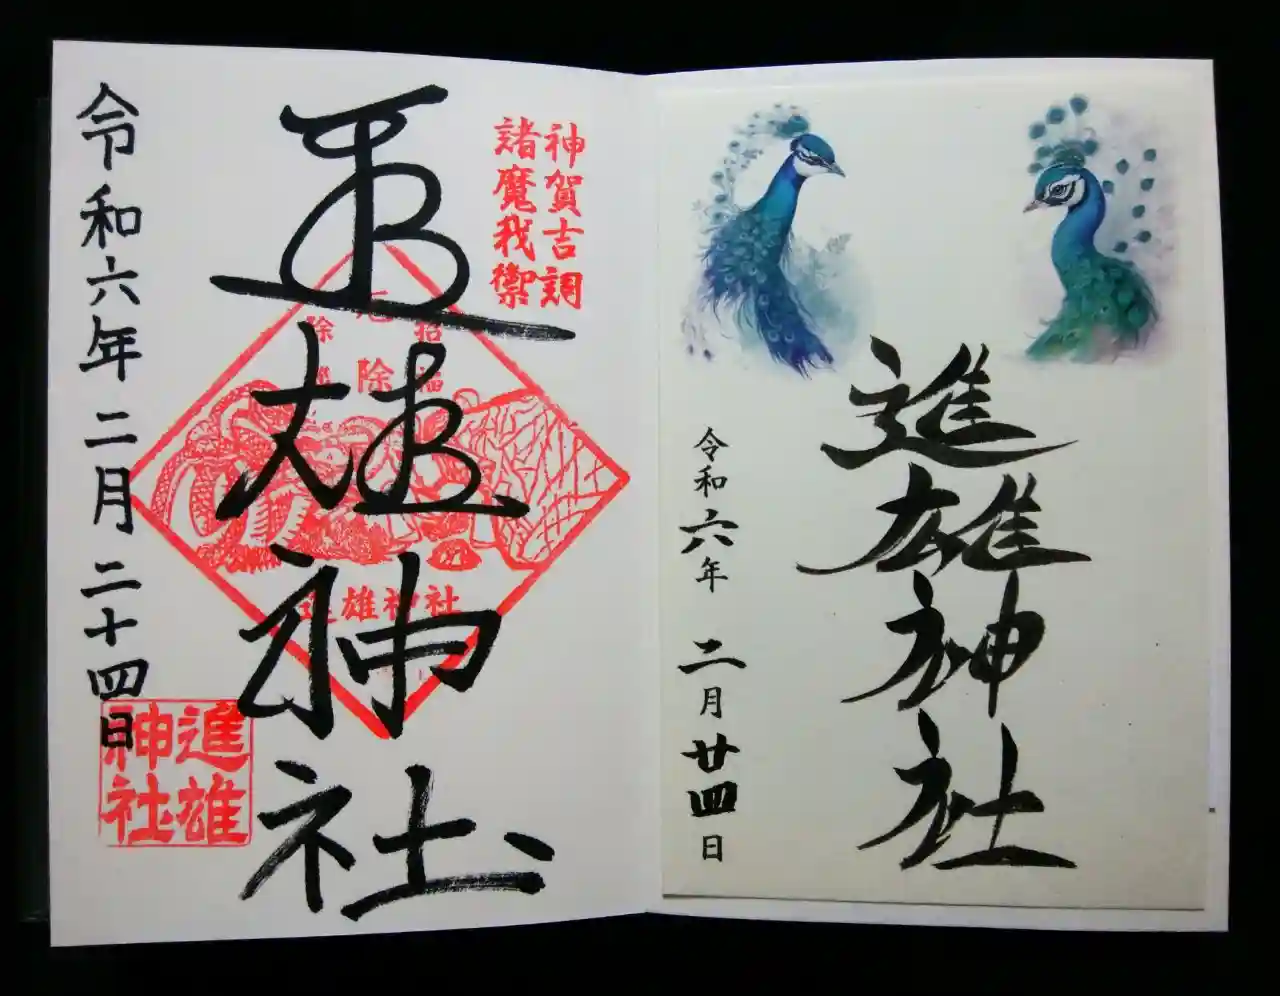 進雄神社
令和六年 二月廿四日
神賀吉詞
諸魔我禦
進雄神社
招福
厄除
進雄神社
令和六年二月二十四日
進雄
神社